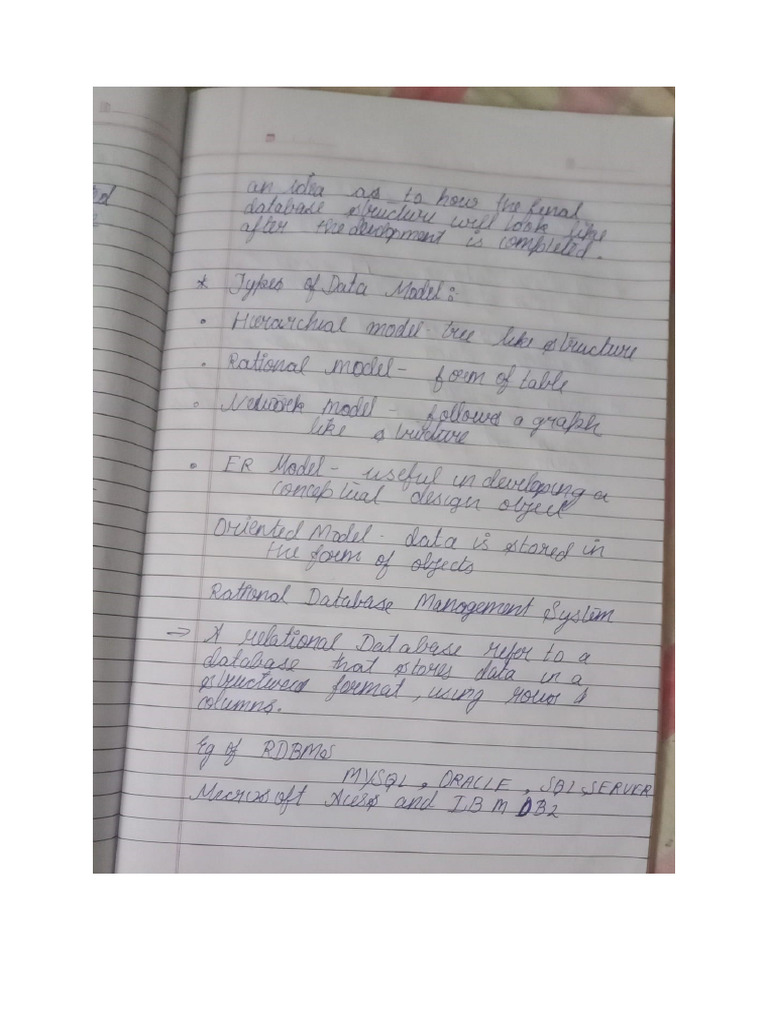 an idea as to how the final
database structure will look like
after the development is completed.
* Types of Data Model :
• Hierarchial model - tree like structure
• Rational model - form of table
• Network Model - follows a graph
like structure
• ER Model - useful in developing a
conceptual design object
Oriented Model - data is stored in
the form of objects
Rational Database Management System
→ A relational Database refer to a
database that stores data in a
structured format, using rows &
columns.
Eg of RDBMs
MYSQL, ORACLE, SQL SERVER
Mecrosoft Acess and IBM DB2